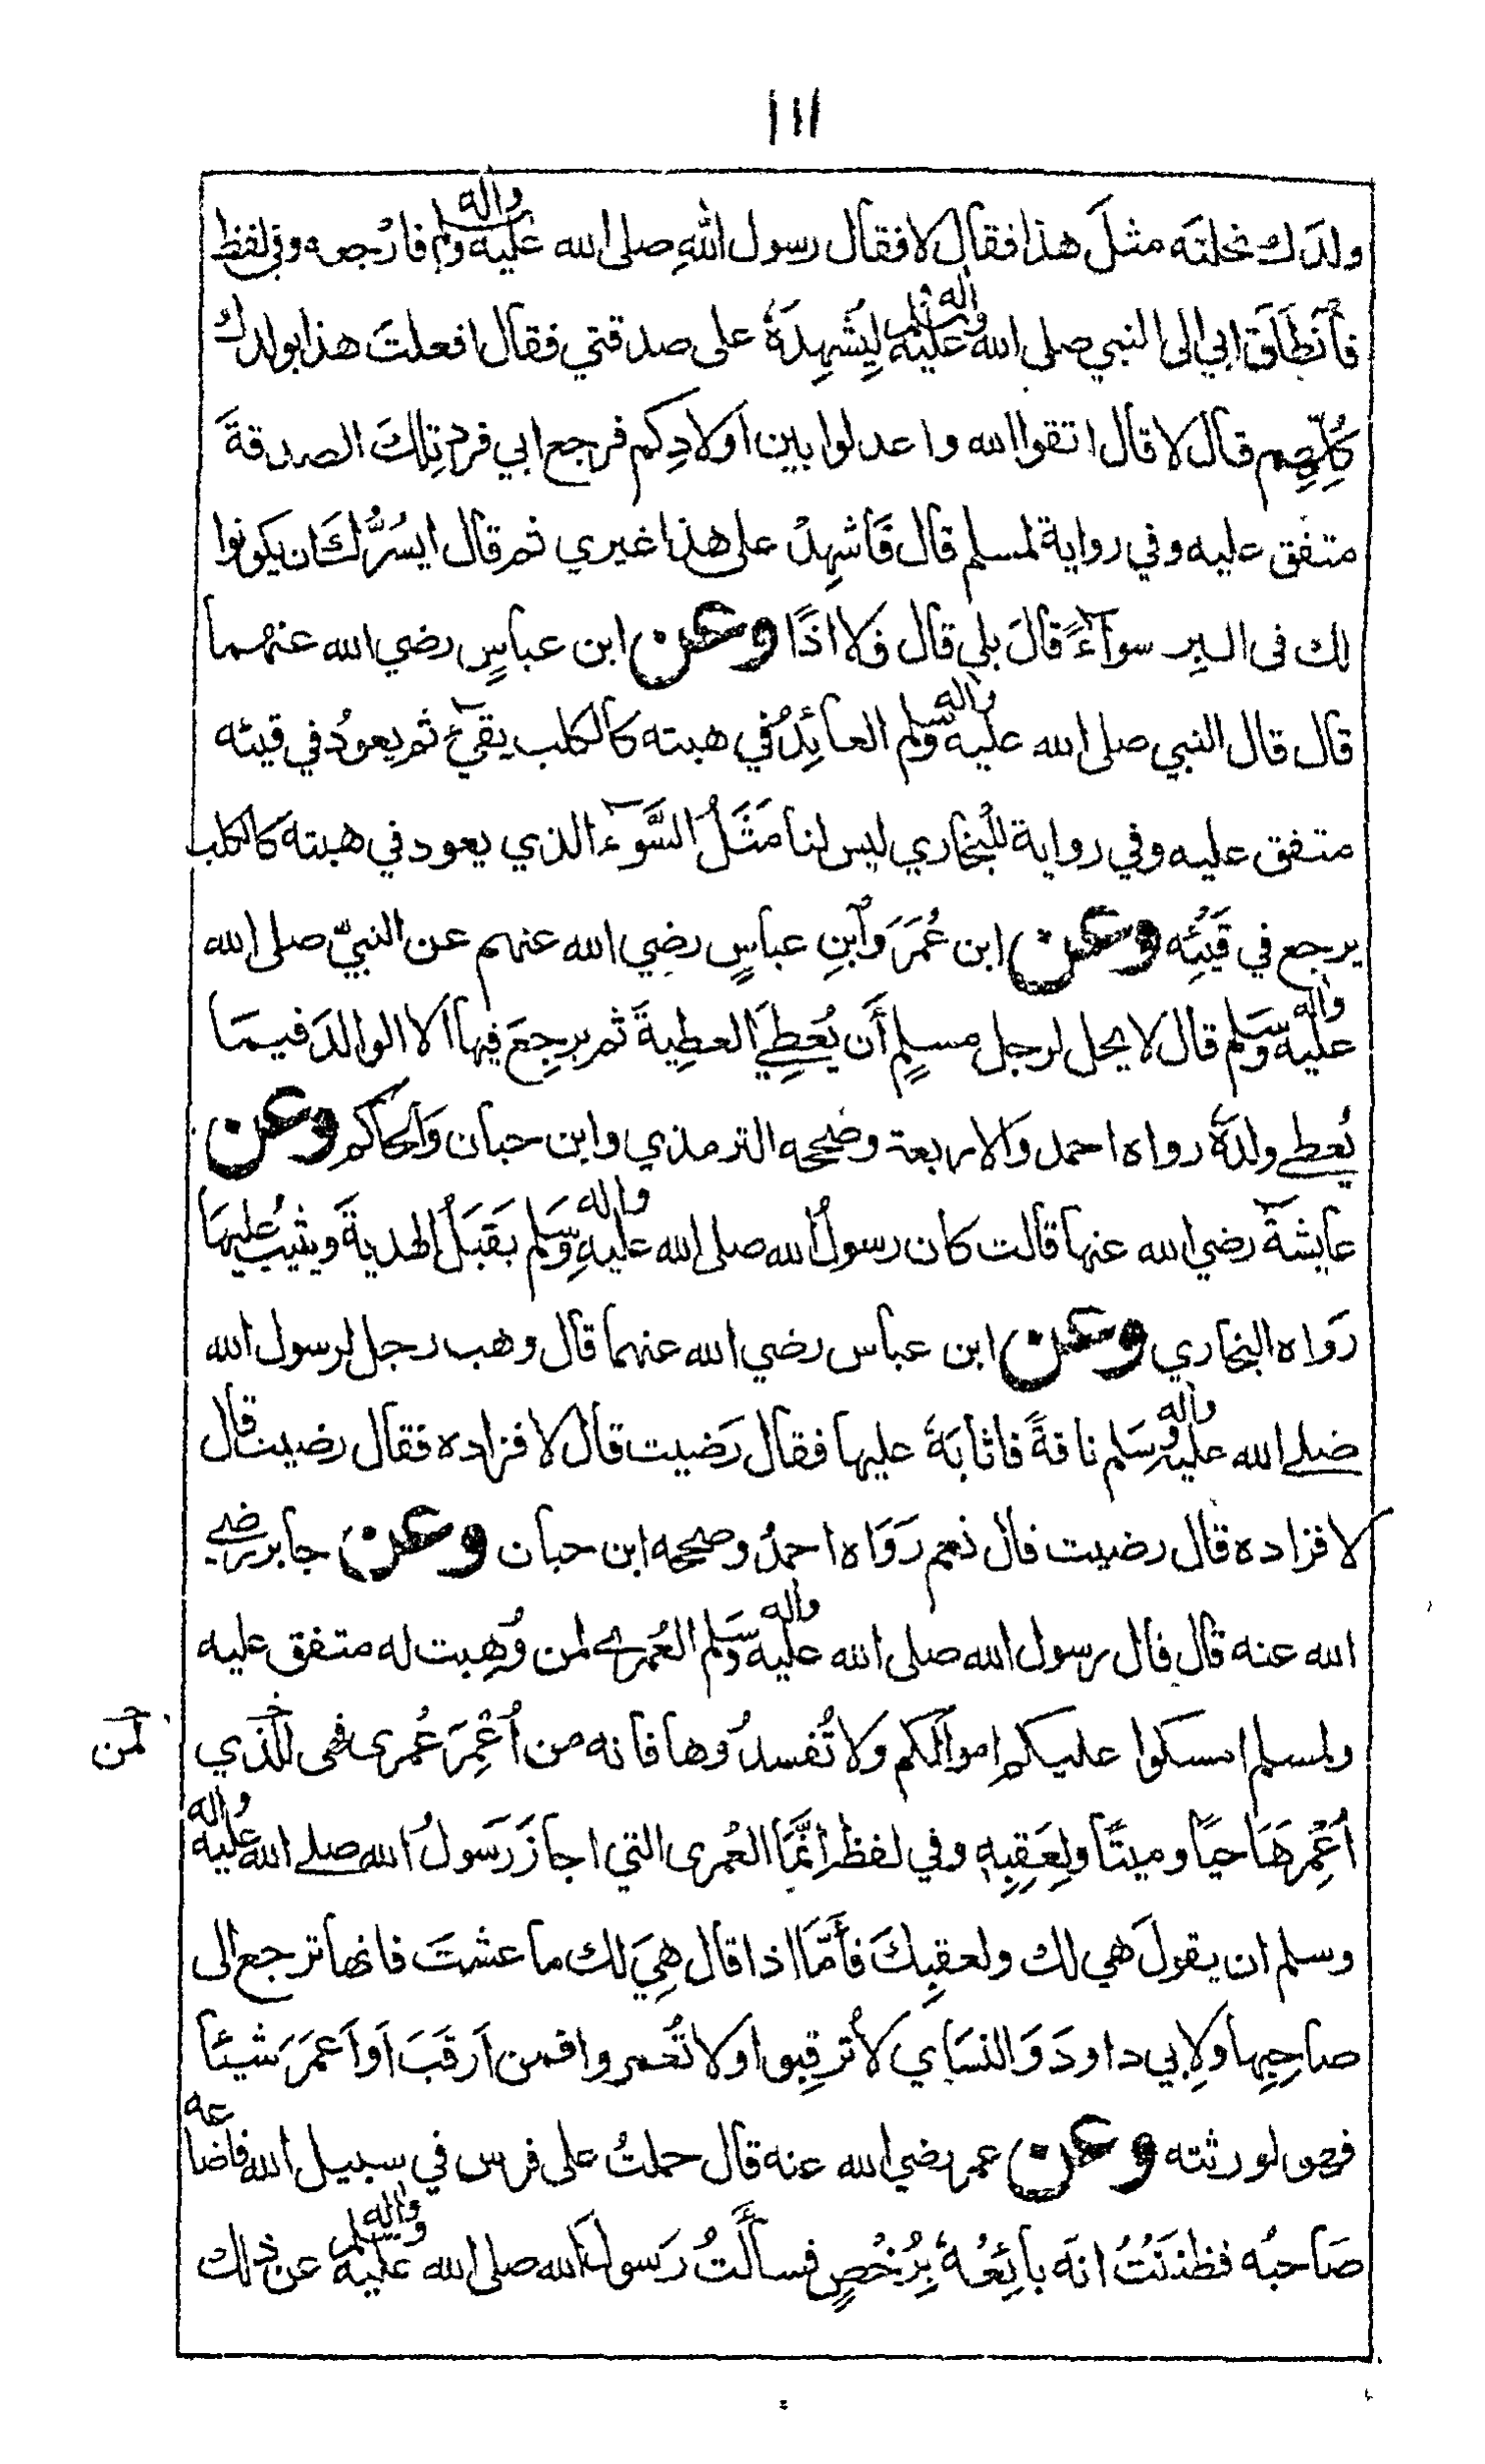 ١١١
ولدك نحلته مثلَ هذا فقال لا فقال رسول اللهِ صلى الله عليه واله وسلم فارْجعه وفي لفظ
فاَنْطَلَقَ ابي الى النبي صلى الله عليه واله وسلم لِيُشْهِدَهُ على صدقتي فقال افعلتَ هذا بولدك
كُلِّهِم قال لا قال اتقوا الله واعدلوا بين اَولادِكم فرجع ابي فرد تِلكَ الصدقةَ
متفق عليه وفي رواية لمسلم قال فَاَشهِدْ على هذا غيري ثم قال ايسُرُّكَ ان يكونوا
لك في البِر سوآءً قالَ بلى قال فلا اذًا وعن ابن عباسٍ رضي الله عنهما
قال قال النبي صلى الله عليه واله وسلم العائِدُ في هبته كالكلب يقيْءُ ثم يعودُ في قيئه
متفق عليه وفي رواية للبُخاري ليس لنا مَثَلُ السَّوْءِ الذي يعود في هبته كالكلب
يرجع في قَيْئِه وعن ابن عُمَرَ وَاَبنِ عباسٍ رضِي الله عنهم عن النبيّ صلى الله
عليه واله وسلم قال لا يحل لرجل مسلِمٍ أَن يُعطِيَ العطِيةَ ثم يرجِعَ فيها الا الوالدَ فيمَا
يُعطي ولدَهُ رواه احمد وَالاربعة وصححه الترمذي وابن حبان وَالحاكم وعن
عايشةَ رضي الله عنها قالت كان رسولُ الله صلى الله عليهِ واله وسَلم يَقبَلُ الهديةَ ويثيبُ عليهَا
رَواه البخاري وعن ابن عباس رضي الله عنهما قال وهب رجل لرسول الله
صلى الله عليه واله وسلم ناقةً فاثابَهُ عليها فقال رَضيت قال لا فزاده فقال رضيت قال
لا فزاده قال رضيت قال نعم رَوَاه احمدُ وصححه ابن حبان وعن جابر رضي
الله عنه قال قال رسول الله صلى الله عليه واله وسلم العُمرى لمن وُهِبت له متفق عليه
ولمسلم امسكوا عليكم اموالكم ولا تُفسدُوها فانه من اُعْمِرَ عُمرى فهى للذي لمن
اُعْمِرهَا حيًا وميتًا ولِعَقِبِهِ وفي لفظ اِنَّمَا العُمرى التي اجازَ رَسَولُ الله صلى الله عليه واله
وسلم ان يقولَ هي لك ولعقِبكَ فأَمَّا اذا قال هِيَ لك ما عشتَ فانها ترجع الى
صاحِبِها ولابي داودَ وَالنسَاي لا تُرقِبوا ولا تُعمروا فمن اَرقَبَ اَو اَعمَرَ شيئًا
فهو لورثته وعن عمر رضي الله عنه قال حملتُ على فرس في سبيل الله فاضاعه
صَاحبُه فظنَنْتُ انه بائِعُهُ بِرُخْصٍ فسأَلتُ رَسولَ الله صلى الله عليه واله وسلم عن ذلك